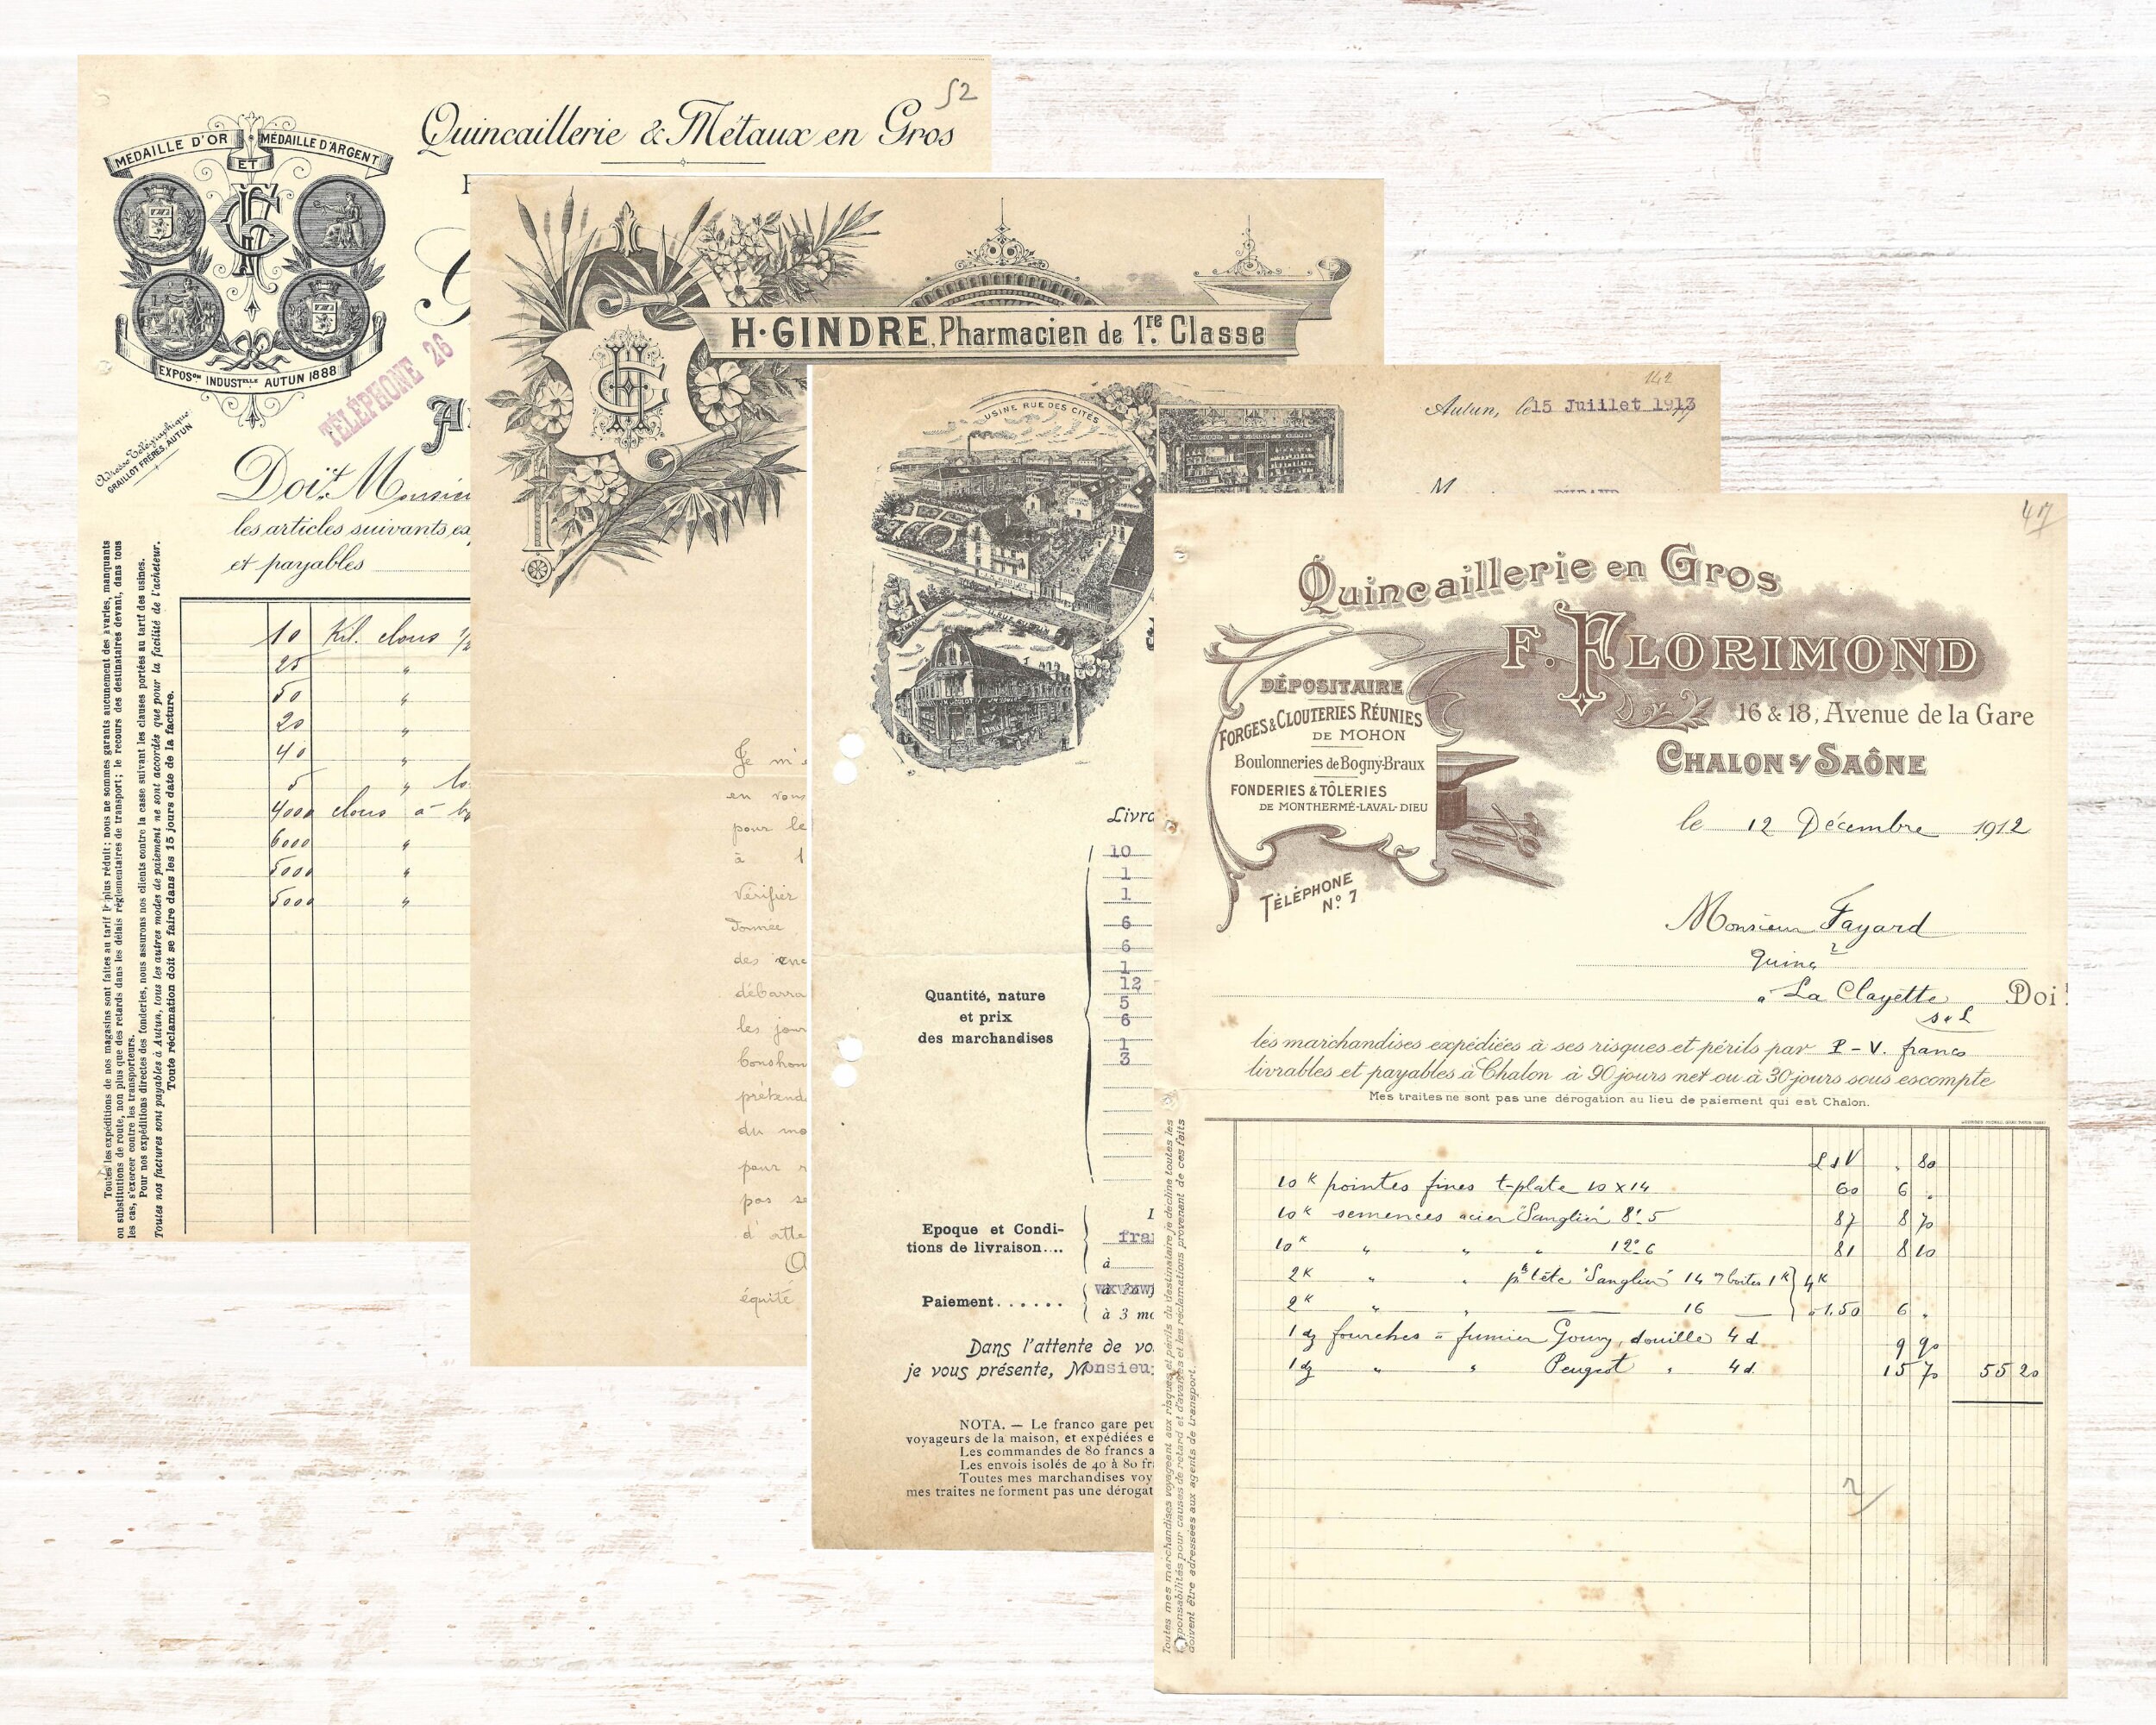 52
Quincaillerie & Métaux en Gros
MÉDAILLE D'OR ET MÉDAILLE D'ARGENT
EXPOS.on INDUST.elle AUTUN 1888
TÉLÉPHONE 26
Adresse Télégraphique
GRAILLOT FRÈRES, AUTUN
Doit Monsieu
les articles suivants ex
et payables
10 Kil. clous
25 "
50 "
20 "
40 "
5 "
4000 clous à
6000 "
5000 "
5000 "
Toutes les expéditions de nos magasins sont faites au tarif le plus réduit; nous ne sommes garants aucunement des avaries, manquants
ou substitutions de route, non plus que des retards dans les délais réglementaires de transport; le recours des destinataires devant, dans tous
les cas, s'exercer contre les transporteurs.
Pour nos expéditions directes des fonderies, nous assurons nos clients contre la casse suivant les clauses portées au tarif des usines.
Toutes nos factures sont payables à Autun, tous les autres modes de paiement ne sont accordés que pour la facilité de l'acheteur.
Toute réclamation doit se faire dans les 15 jours date de la facture.
H. GINDRE, Pharmacien de 1re Classe
Je m'
en vous
pour le
à l
vérifier
donnée
des enc
débarra
les jour
bonshom
prétend
du mo
pour
pas se
d'atte
équité
USINE RUE DES CITÉS
142
Autun, le 15 Juillet 1913
Livra
10
1
1
6
6
1
12
5
6
1
3
Quantité, nature
et prix
des marchandises
Epoque et Condi-
tions de livraison....
fra
à
Paiement......
à 3 mo
Dans l'attente de vo
je vous présente, Monsieu
NOTA. — Le franco gare peu
voyageurs de la maison, et expédiées e
Les commandes de 80 francs a
Les envois isolés de 40 à 80 fr
Toutes mes marchandises voy
mes traites ne forment pas une dérogat
47
Quincaillerie en Gros
F. FLORIMOND
16 & 18, Avenue de la Gare
CHALON S/ SAÔNE
DÉPOSITAIRE
FORGES & CLOUTERIES RÉUNIES
DE MOHON
Boulonneries de Bogny-Braux
FONDERIES & TÔLERIES
DE MONTHERMÉ-LAVAL-DIEU
TÉLÉPHONE
No 7
le 12 Décembre 1912
Monsieur Fayard
quinc
à La Clayette Doit
s & L
les marchandises expédiées à ses risques et périls par P-V. franco
livrables et payables à Chalon à 90 jours net ou à 30 jours sous escompte
Mes traites ne sont pas une dérogation au lieu de paiement qui est Chalon.
80
10 K pointes fines t-plate 10 x 14 60 6 "
10 K semences acier "Sanglier" 8° 5 87 8 70
10 K " " " 12° 6 81 8 10
2K " " pte tête "Sanglier" 14 m/ boites 1K 4K
2K " " 16 1.50 6 "
1 dz fourches à fumier Gouvy, douille 4 d. 9 90
1 dz " " Peugeot " 4 d. 15 70 55 20
Toutes mes marchandises voyageant aux risques et périls du destinataire je décline toutes les
responsabilités pour causes de retard et d'avaries et les réclamations provenant de ces faits
doivent être adressées aux agents de transport.